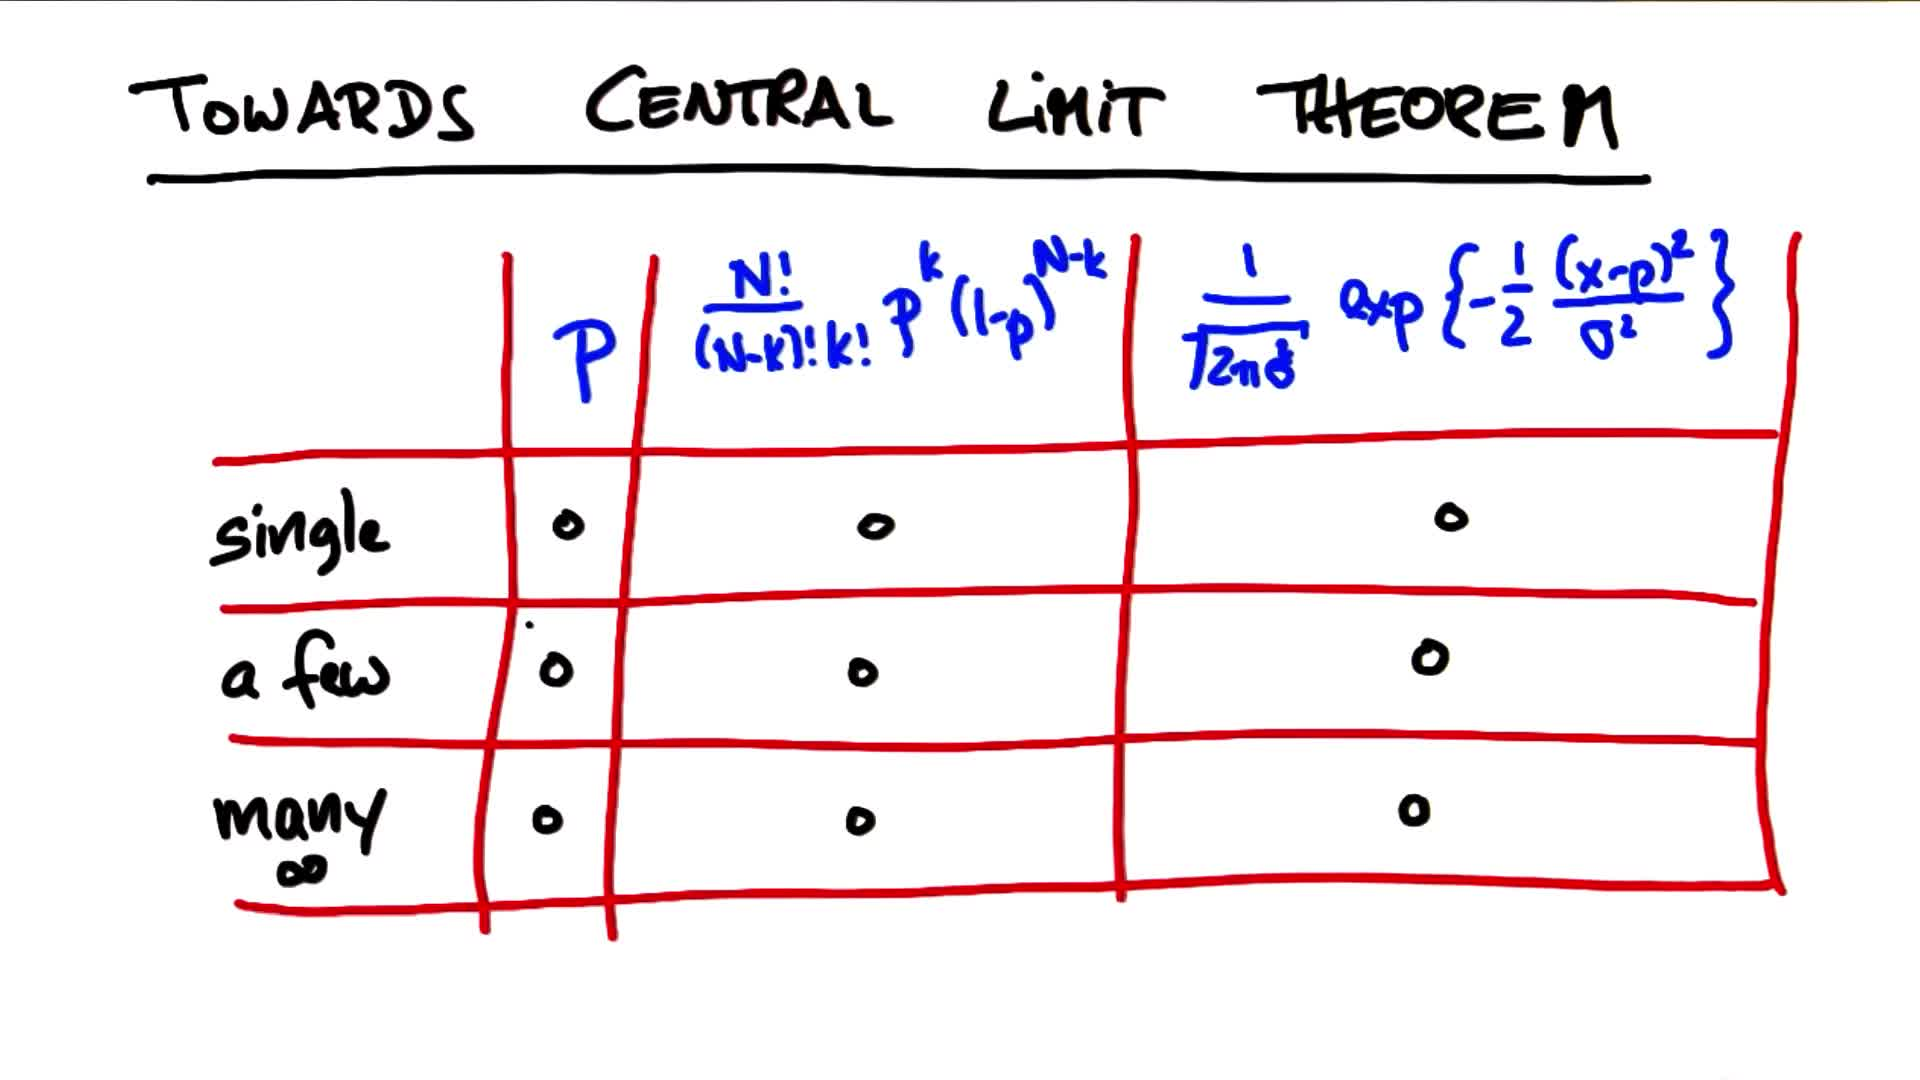 TOWARDS CENTRAL LIMIT THEOREM
P N!/((N-k)!k!) P^k (1-p)^(N-k) 1/√(2πσ²) exp{-1/2 (x-p)²/σ²}
single o o o
a few o o o
many o o o
∞